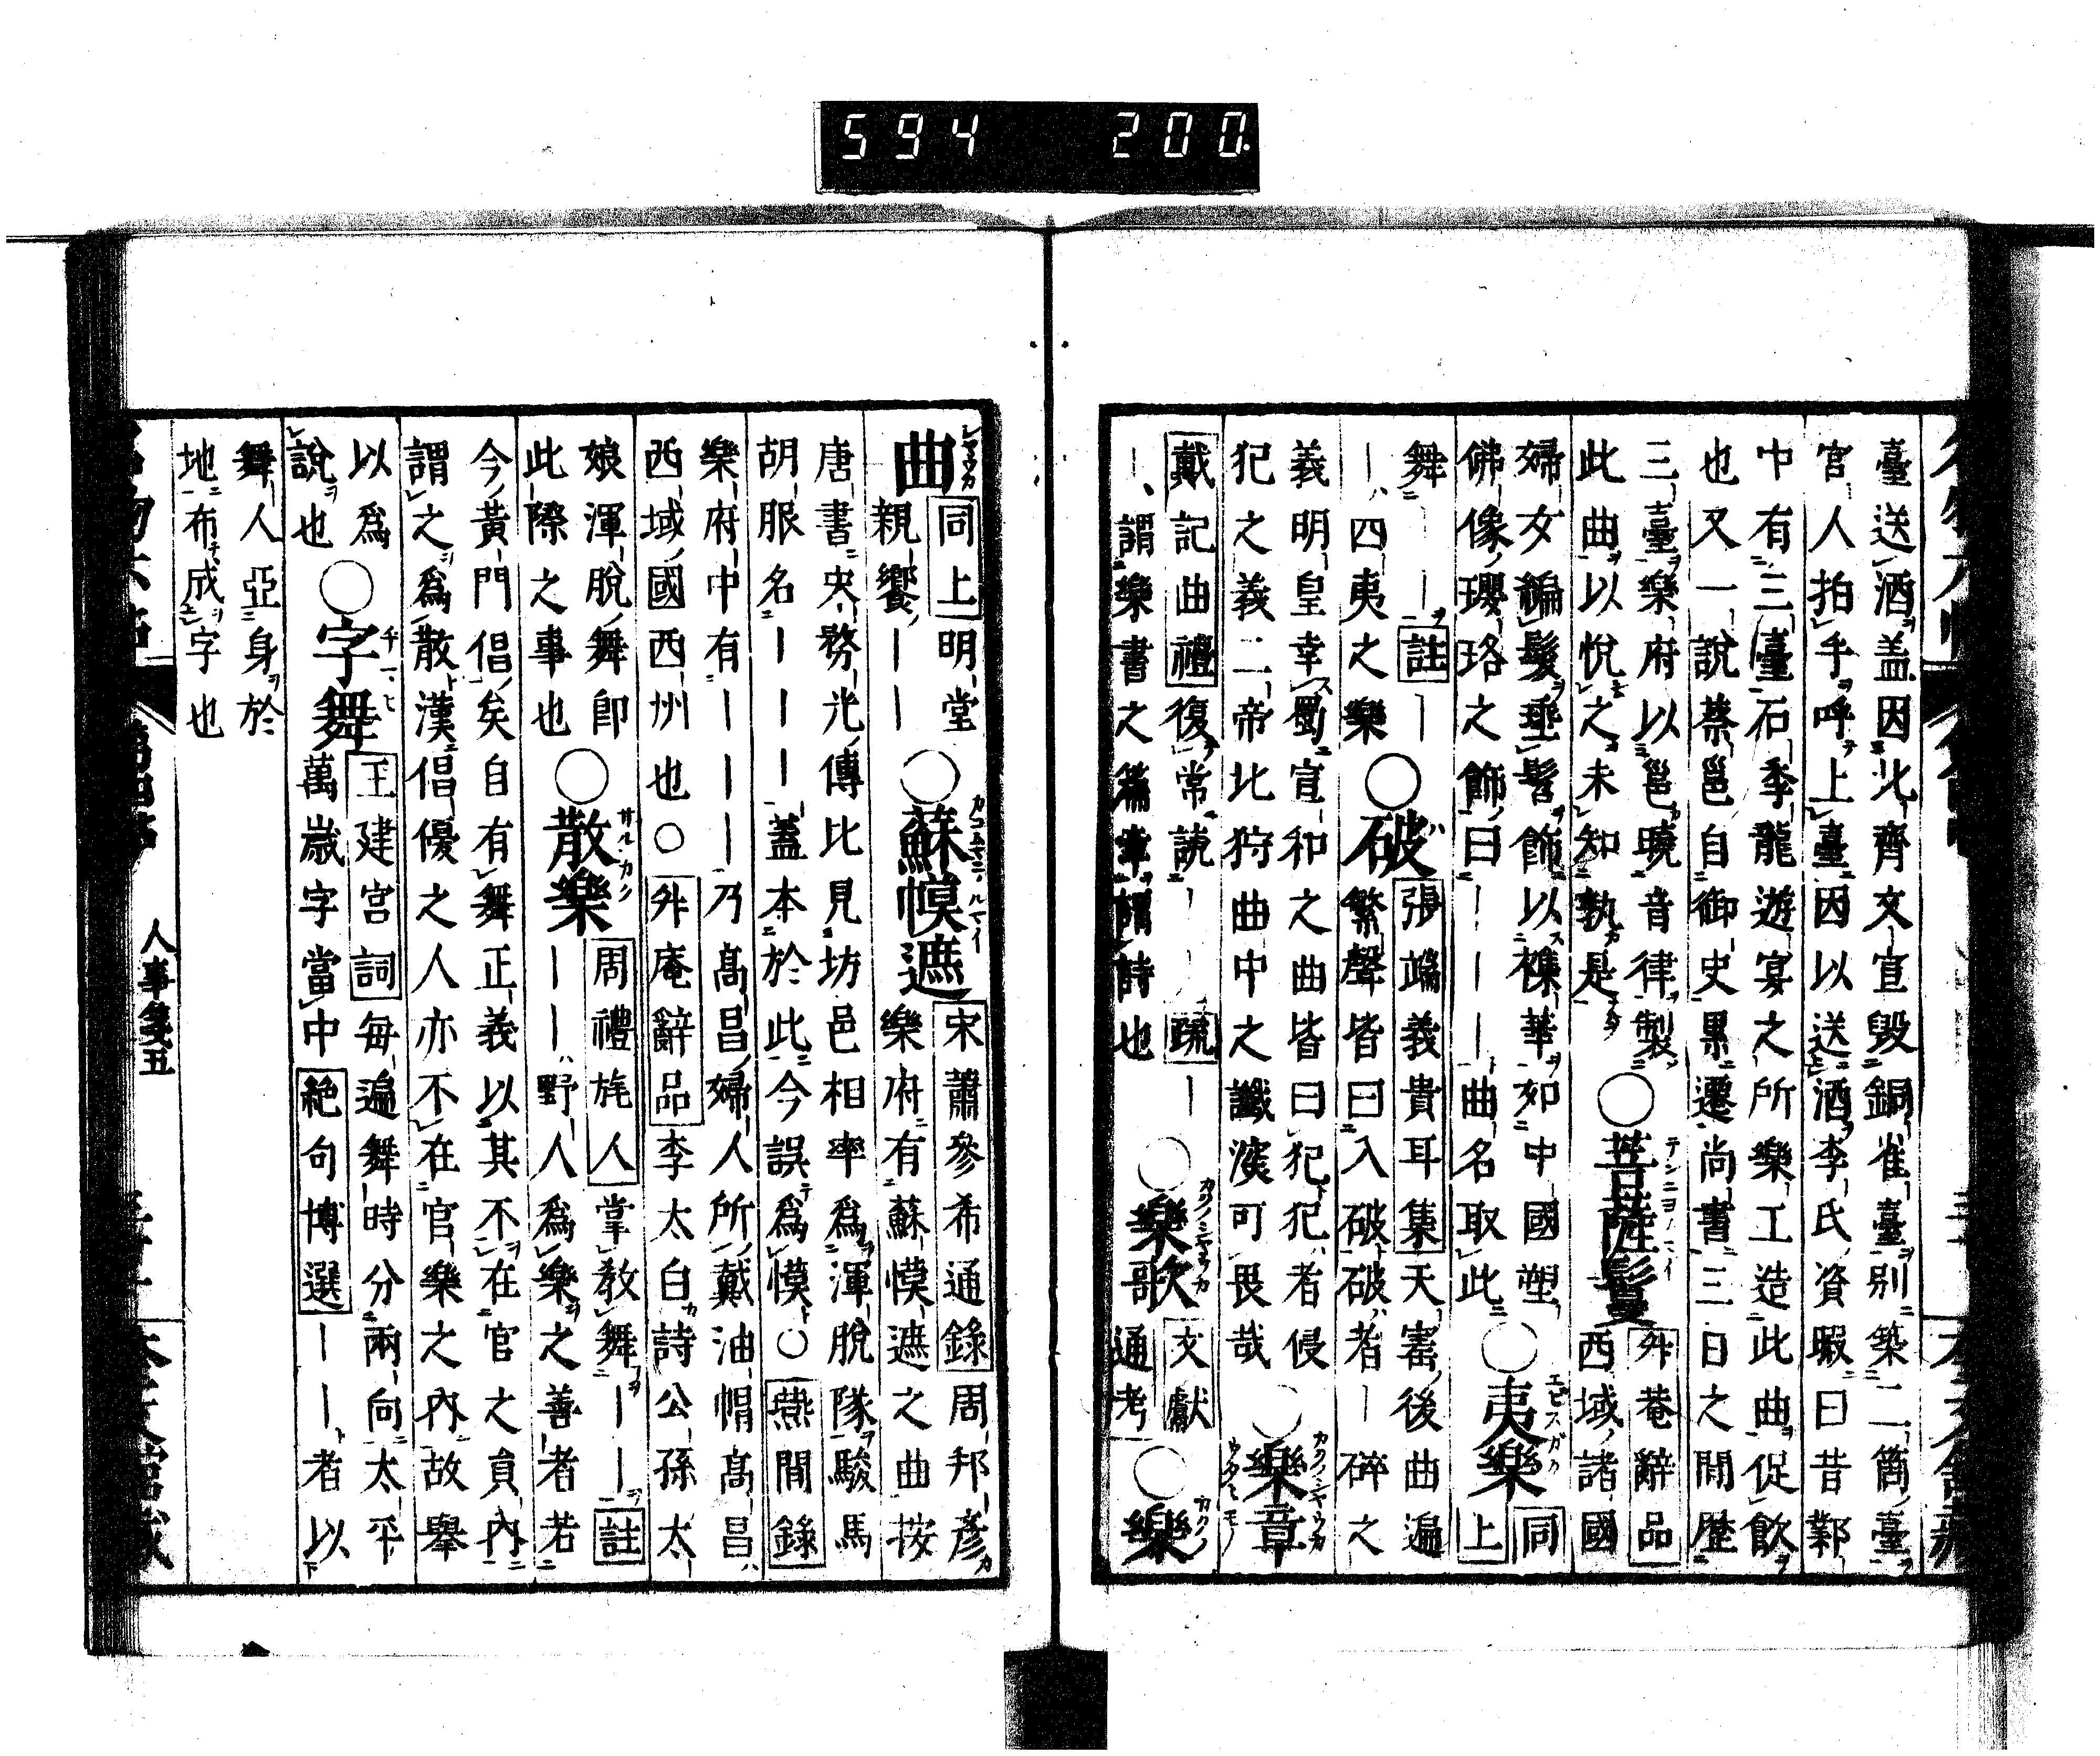 594 200.
臺送酒盖因北齊文宣毀銅雀臺別築二箇臺
官人拍手呼上臺因以送酒李氏資暇曰昔鄴
中有三臺石季龍遊宴之所樂工造此曲促飲
也又一說蔡邕自御史累遷尚書三日之間歷
三臺樂府以邕曉音律製
此曲以悅之未知孰是
○菩薩鬘
升菴辭品
西域諸國
婦女編髮垂髻飾以襍華如中國塑
佛像瓔珞之飾曰―――曲名取此
○夷樂
同
上
舞――註―
―四夷之樂
○破
張端義貴耳集天寳後曲遍
繁聲皆曰入破破者―碎之
義明皇幸蜀宣和之曲皆曰犯犯者侵
犯之義二帝北狩曲中之讖深可畏哉
○樂章
戴記曲禮復常讀――疏―
―謂樂書之篇章謂詩也
○樂歌
文獻
通考
○樂
曲
同上明堂
親饗――
○蘇幙遮
宋蕭參希通錄周邦彦
樂府有蘇幙遮之曲按
唐書宋務光傳比見坊邑相率爲渾脫隊駿馬
胡服名―――蓋本於此今誤爲幙○燕閒錄
樂府中有―――乃髙昌婦人所戴油帽髙昌
西域國西州也○升庵辭品李太白詩公孫太
娘渾脫舞卽
此際之事也
○散樂
周禮旄人掌敎舞――註
――野人爲樂之善者若
今黃門倡矣自有舞正義以其不在官之員內
謂之爲散漢倡優之人亦不在官樂之內故舉
以爲
說也
○字舞
王建宮詞每遍舞時分兩向太平
萬歲字當中絶句博選――者以
舞人亞身於
地布成字也
人事箋五